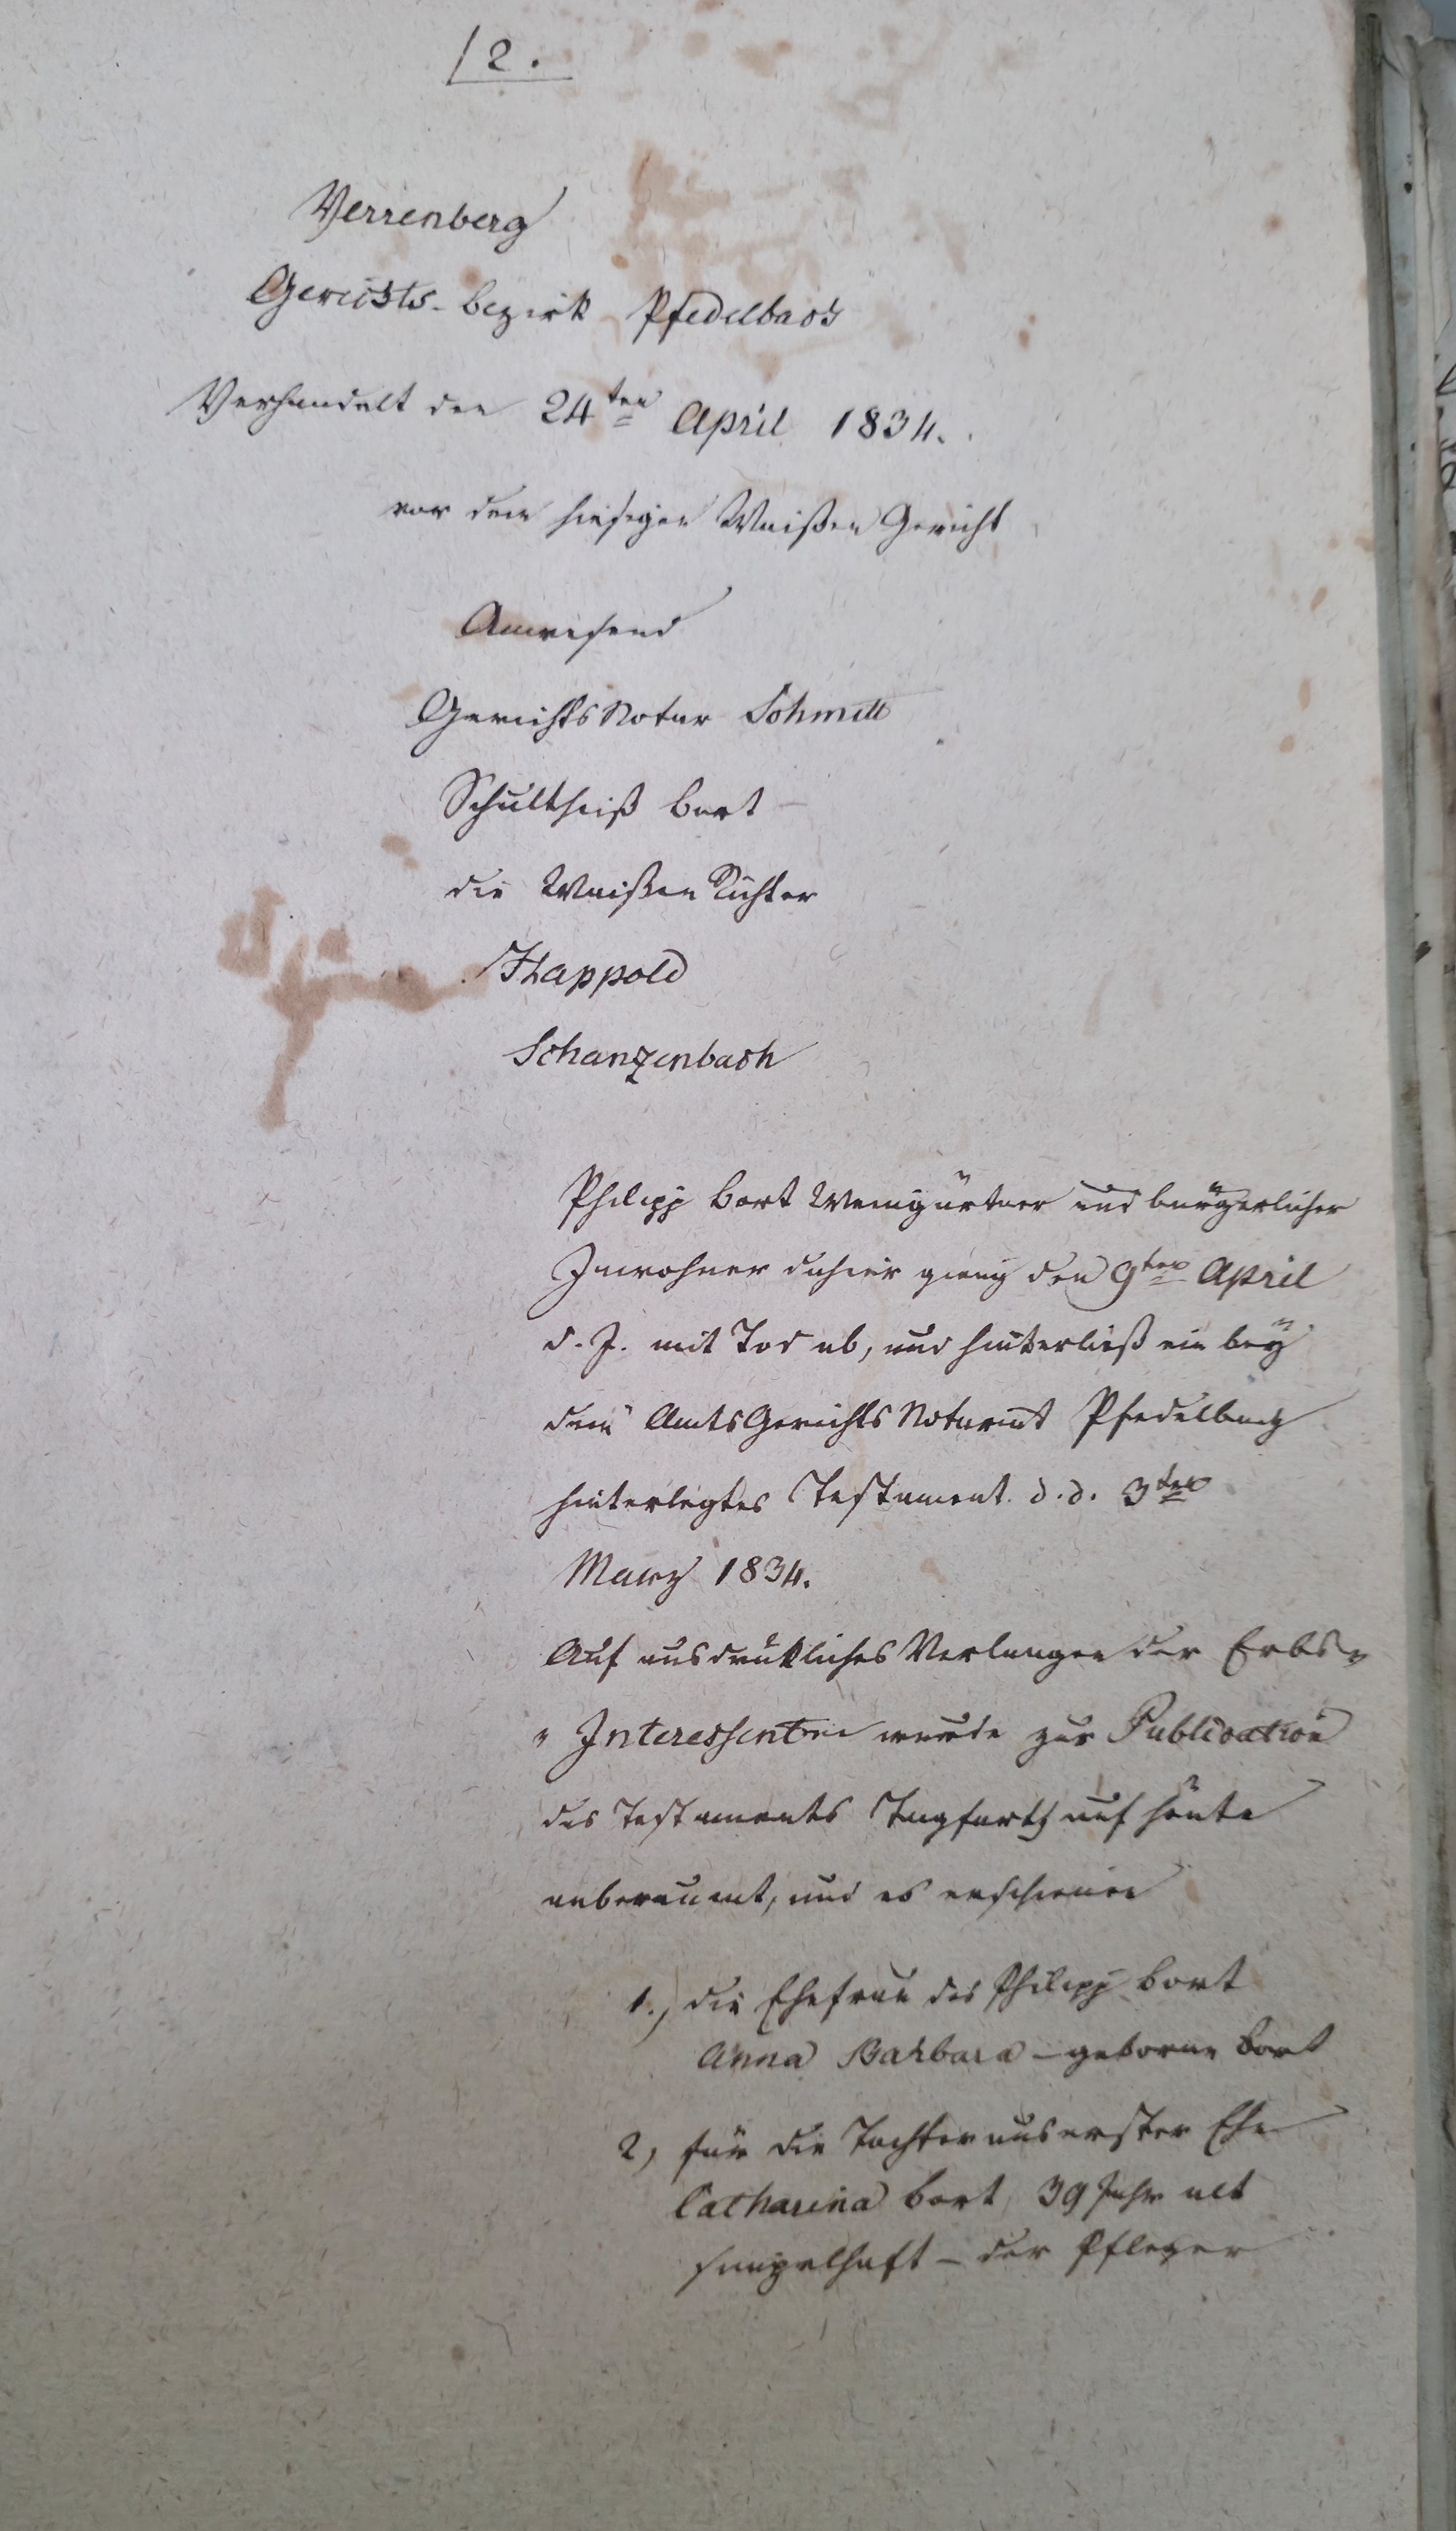 12.
Verrenberg
Gerichts-bezirk Pfedelbach
Verhandelt den 24ten April 1834.
vor dem hiesigen Waißen Gericht
Anwesend
Gerichts Notar Schmitt
Schultheiß Bort
die Waißen Richter
Happold
Schanzenbach
Philipp Bort Weingärtner und bürgerlicher
Inwohner dahier gieng den 9ten April
d. J. mit Tod ab, und hinterließ ein bey
dem AmtsGerichts Notariat Pfedelbach
hinterlegtes Testament d. d. 3ten
Marz 1834.
Auf ausdrükliches Verlangen der Erbs-
" Interessenten wurde zur Publication
des Testaments Tagfarth auf heute
anberaumt, und es erschienen
1.) die Ehefrau des Philipp Bort
Anna Barbara - geborne Bort
2) für die Tochter aus erster Ehe
Catharina Bort, 39 Jahr alt
simpelhaft - der Pfleger